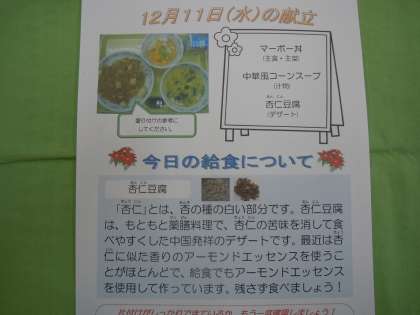 12月11日(水)の献立
マーボー丼
(主食・主菜)
中華風コーンスープ
(汁物)
あん にん
杏仁豆腐
(デザート)
盛り付けの参考に
してください。
今日の給食について
杏仁豆腐
「杏仁」とは、杏の種の白い部分です。杏仁豆腐
は、もともと薬膳料理で、杏仁の苦味を消して食
べやすくした中国発祥のデザートです。最近は杏
仁に似た香りのアーモンドエッセンスを使うこ
とがほとんどで、給食でもアーモンドエッセンス
を使用して作っています。残さず食べましょう!